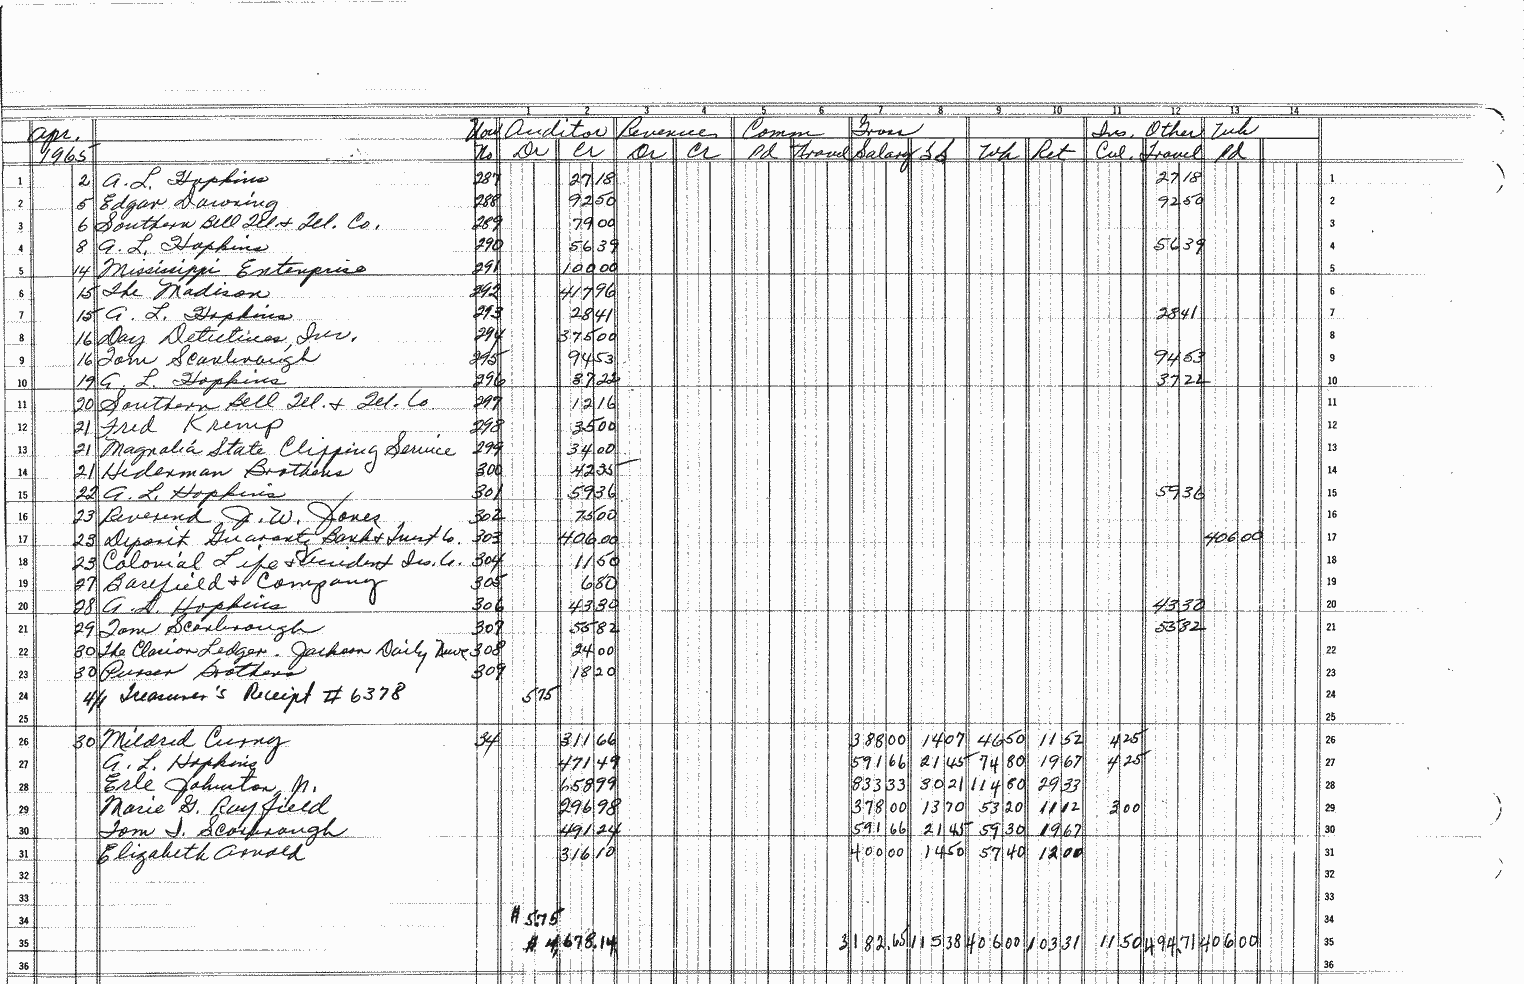 1 2 3 4 5 6 7 8 9 10 11 12 13 14
Apr. Vou Auditor Revenues Comm Gross Ins. Other Wh
1965 No Dr Cr Dr Cr Pd Travel Salary SS Wh Ret Col. Travel Pd
1 2 A. L. Hopkins 287 27 18 27 18 1
2 5 Edgar Downing 288 92 50 92 50 2
3 6 Southern Bell Tel. & Tel. Co. 289 79 00 3
4 8 A. L. Hopkins 290 56 39 56 39 4
5 14 Mississippi Enterprise 291 100 00 5
6 15 The Madison 292 417 96 6
7 15 A. L. Hopkins 293 28 41 28 41 7
8 16 Day Detectives, Inc. 294 375 00 8
9 16 Tom Scarbrough 295 94 53 94 53 9
10 19 A. L. Hopkins 296 37 22 37 22 10
11 20 Southern Bell Tel. & Tel. Co 297 12 16 11
12 21 Fred Kremp 298 35 00 12
13 21 Magnolia State Clipping Service 299 34 00 13
14 21 Hederman Brothers 300 42 35 14
15 22 A. L. Hopkins 301 59 36 59 36 15
16 23 Reverend J. W. Jones 302 75 00 16
17 23 Deposit Guaranty Bank & Trust Co. 303 406 00 406 00 17
18 23 Colonial Life & Accident Ins. Co. 304 11 50 18
19 27 Barefield & Company 305 6 80 19
20 28 A. L. Hopkins 306 43 30 43 30 20
21 29 Tom Scarbrough 307 55 82 55 82 21
22 30 The Clarion Ledger - Jackson Daily News 308 24 00 22
23 30 Purser Brothers 309 18 20 23
24 4/1 Treasurer's Receipt # 6378 5 75 24
25 25
26 30 Mildred Curry 34 311 66 388 00 14 07 46 50 11 52 4 25 26
27 A. L. Hopkins 471 49 591 66 21 45 74 80 19 67 4 25 27
28 Erle Johnston, Jr. 658 99 833 33 30 21 114 80 29 33 28
29 Marie G. Rayfield 296 98 378 00 13 70 53 20 11 12 3 00 29
30 Tom J. Scarbrough 491 24 591 66 21 45 59 30 19 67 30
31 Elizabeth Arnold 316 10 400 00 14 50 57 40 12 00 31
32 32
33 33
34 # 5.75 34
35 # 4,678.14 3182.65 115 38 406 00 103 31 11 50 494.71 406 00 35
36 36